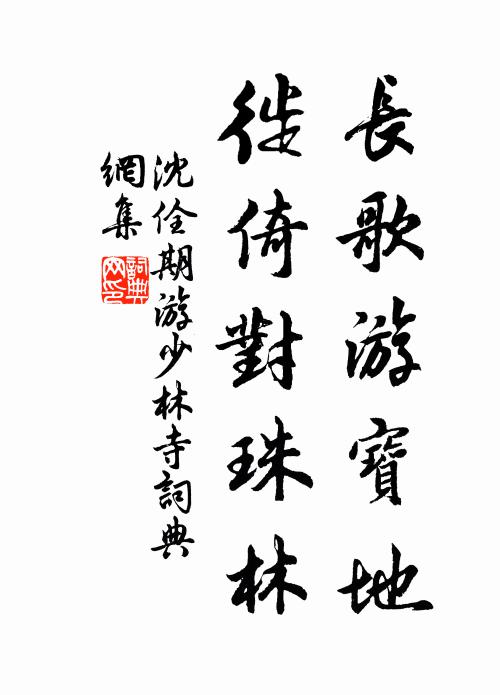 長歌游寶地
徙倚對珠林
沈佺期游少林寺詞典
網集
詞典
网印